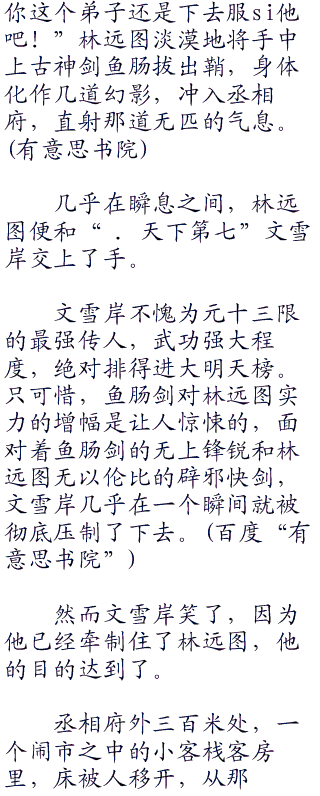 你这个弟子还是下去服si他
吧！”林远图淡漠地将手中
上古神剑鱼肠拔出鞘，身体
化作几道幻影，冲入丞相
府，直射那道无匹的气息。
(有意思书院)
几乎在瞬息之间，林远
图便和“．天下第七”文雪
岸交上了手。
文雪岸不愧为元十三限
的最强传人，武功强大程
度，绝对排得进大明天榜。
只可惜，鱼肠剑对林远图实
力的增幅是让人惊悚的，面
对着鱼肠剑的无上锋锐和林
远图无以伦比的辟邪快剑，
文雪岸几乎在一个瞬间就被
彻底压制了下去。(百度“有
意思书院”)
然而文雪岸笑了，因为
他已经牵制住了林远图，他
的目的达到了。
丞相府外三百米处，一
个闹市之中的小客栈客房
里，床被人移开，从那